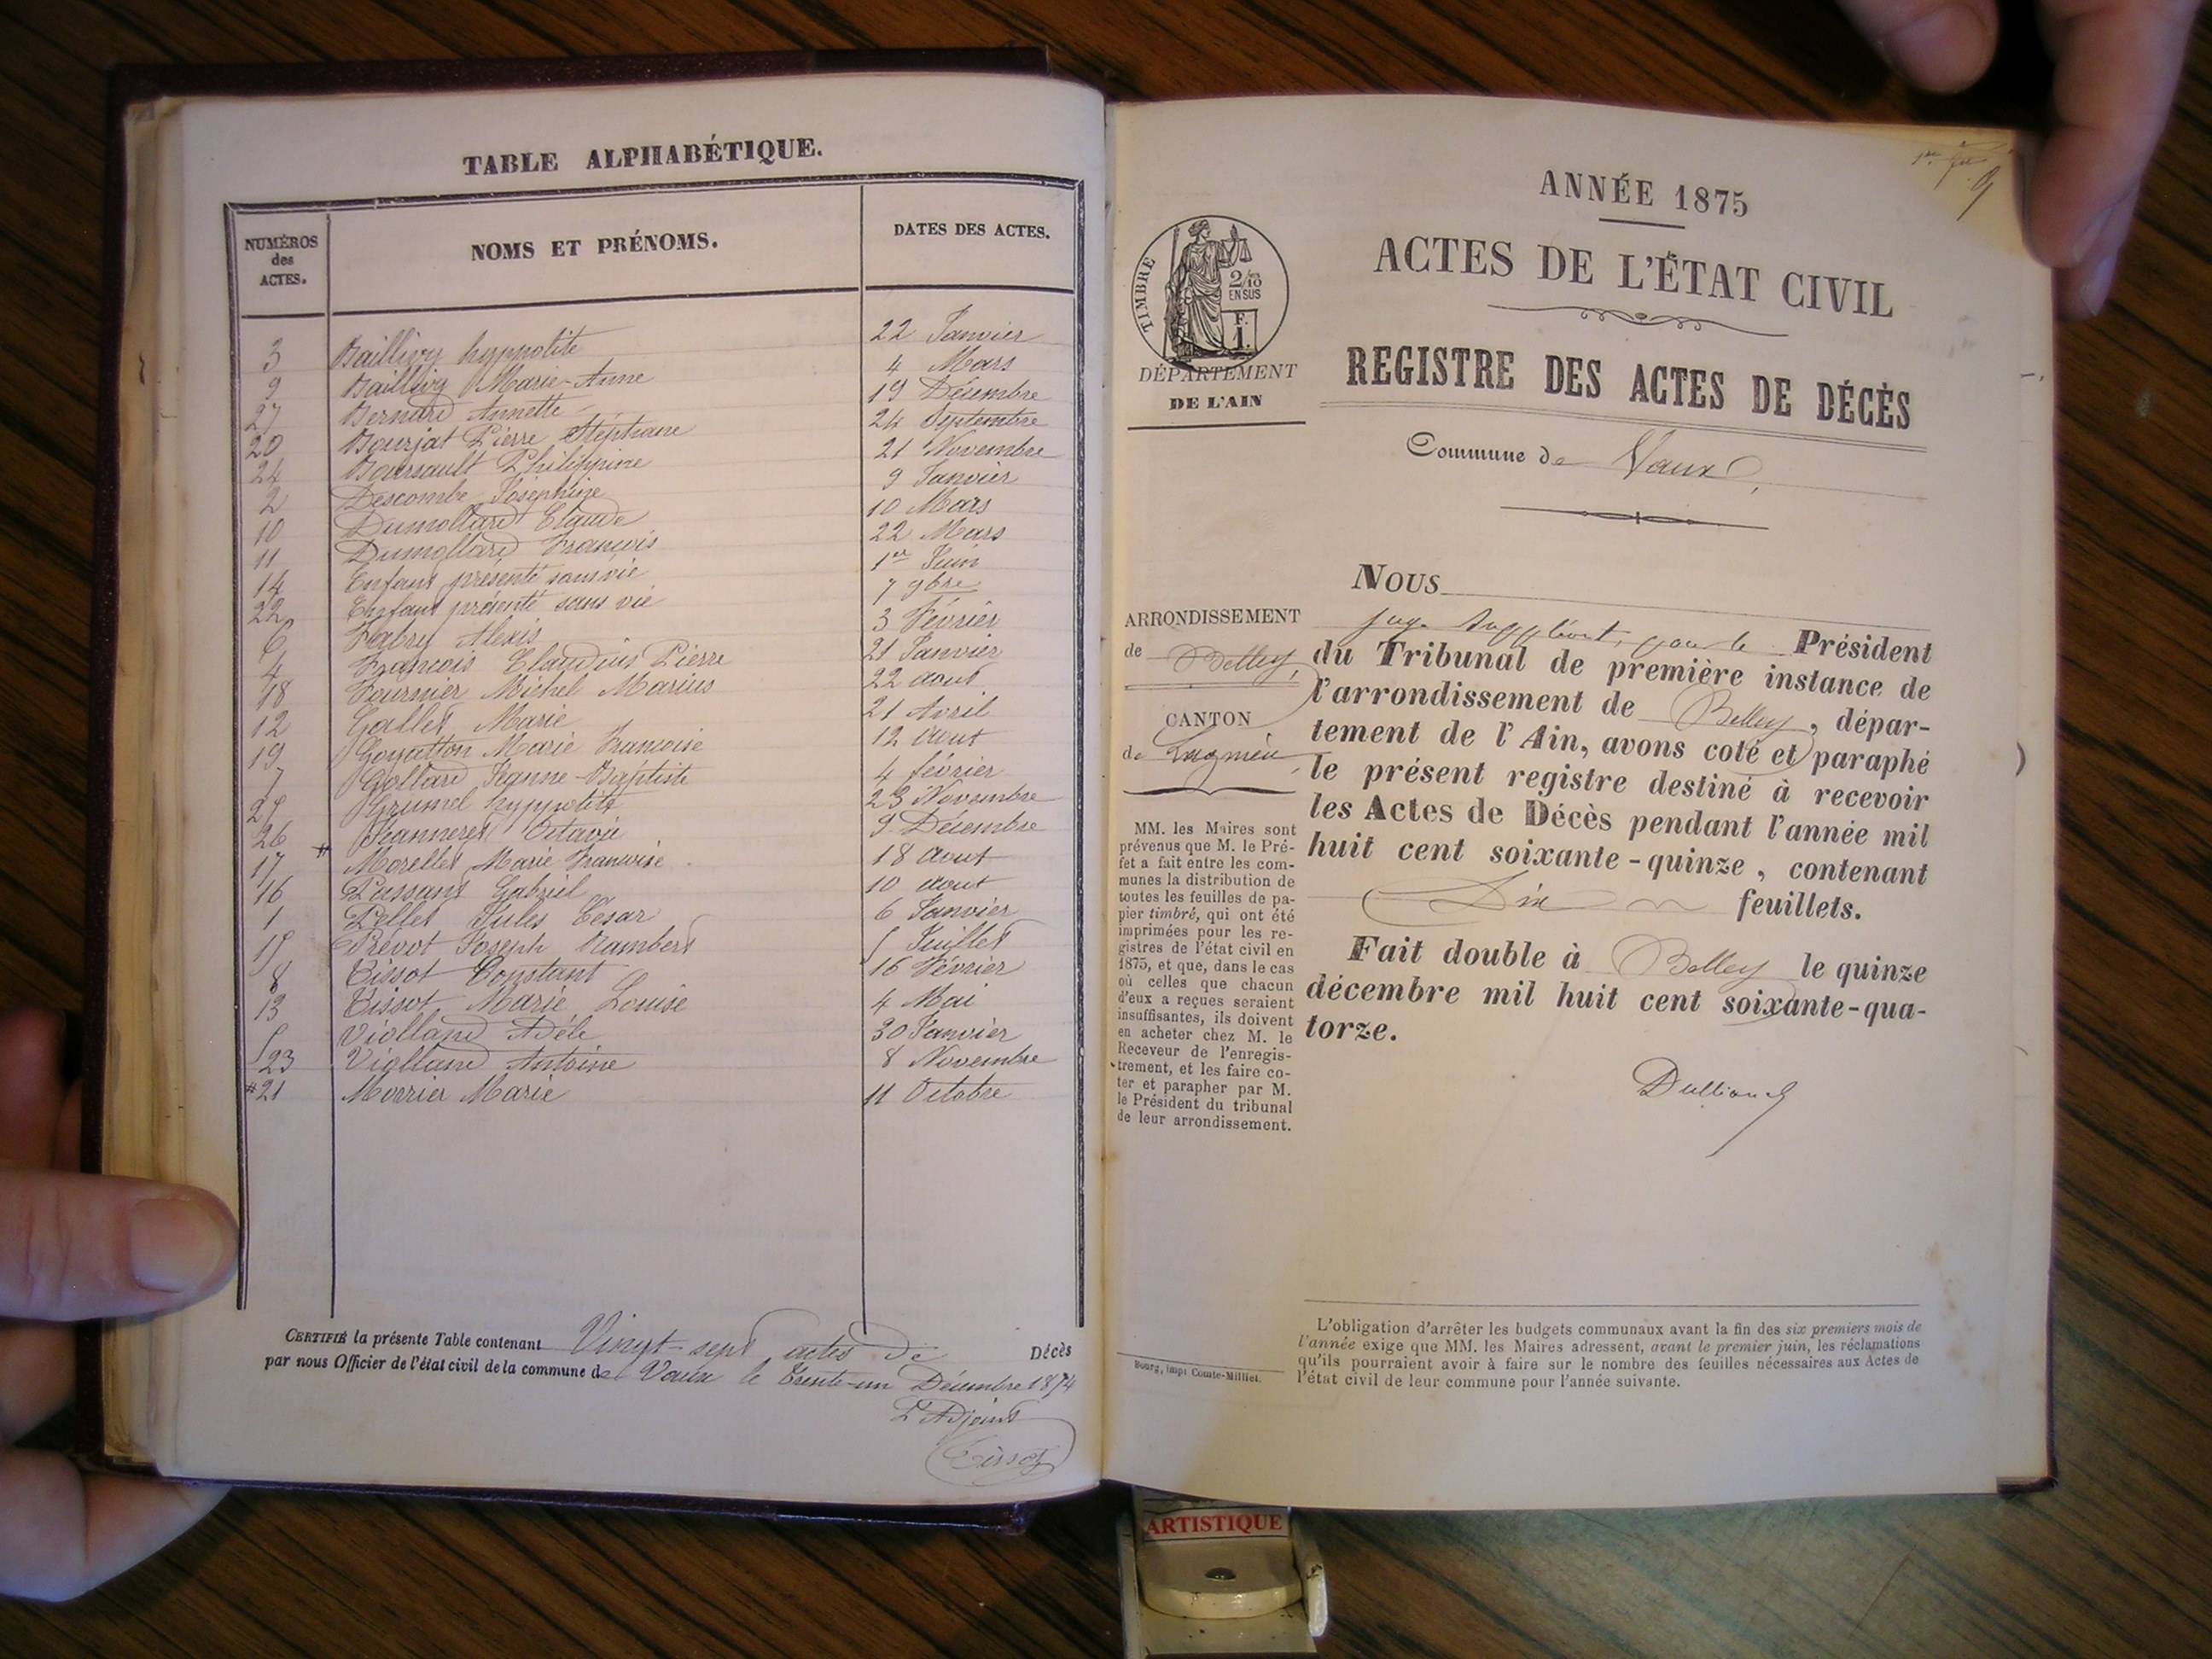 TABLE ALPHABÉTIQUE.
NUMÉROS des ACTES. NOMS ET PRÉNOMS. DATES DES ACTES.
3 Baillivy hyppolite 22 Janvier
9 Baillivy Marie-Anne 4 Mars
27 Bernard Annette 19 Décembre
20 Bourjat Pierre Stéphane 24 Septembre
24 Boursault Philippine 21 Novembre
2 Descombe Joséphine 9 Janvier
10 Dumollard Claude 10 Mars
11 Dumollard François 22 Mars
14 Enfant présenté sans vie 1er Juin
22 Enfant présenté sans vie 7 9bre
6 Fabry Alexis 3 Février
4 François Claudius Pierre 21 Janvier
18 Fournier Michel Marius 22 aout
12 Gallet Marie 21 Avril
19 Goyatton Marie Francoise 12 aout
7 Gollard Jeanne-Baptiste 4 février
25 Grumel hyppolite 23 Novembre
26 Jeanneret Octavie 9 Décembre
17 # Morellet Marie Francoise 18 aout
16 Passant Gabriel 10 aout
1 Pellet Jules César 6 Janvier
15 Prévot Joseph Rambert 5 Juillet
8 Tissot Constant 16 Février
13 Tissot Marie Louise 4 Mai
5 Violland Adèle 30 Janvier
23 Violland Antoine 8 Novembre
#21 Morrier Marie 11 Octobre
CERTIFIÉ la présente Table contenant Vingt-sept actes de Décès
par nous Officier de l'état civil de la commune de Vaux le Trente-un Décembre 1874
L'Adjoint
Tissot
ANNÉE 1875
ACTES DE L'ÉTAT CIVIL
REGISTRE DES ACTES DE DÉCÈS
Commune de Vaux
TIMBRE
2/10
EN SUS
F.
1.
DÉPARTEMENT
DE L'AIN
ARRONDISSEMENT
de Belley,
CANTON
de Lagnieu
MM. les Maires sont
prévenus que M. le Pré-
fet a fait entre les com-
munes la distribution de
toutes les feuilles de pa-
pier timbré, qui ont été
imprimées pour les re-
gistres de l'état civil en
1875, et que, dans le cas
où celles que chacun
d'eux a reçues seraient
insuffisantes, ils doivent
en acheter chez M. le
Receveur de l'enregis-
trement, et les faire co-
ter et parapher par M.
le Président du tribunal
de leur arrondissement.
Bourg, imp: Comte-Milliet.
NOUS
juge suppléant, pour le Président
du Tribunal de première instance de
l'arrondissement de Belley, dépar-
tement de l'Ain, avons coté et paraphé
le présent registre destiné à recevoir
les Actes de Décès pendant l'année mil
huit cent soixante-quinze, contenant
Dix feuillets.
Fait double à Belley le quinze
décembre mil huit cent soixante-qua-
torze.
L'obligation d'arrêter les budgets communaux avant la fin des six premiers mois de
l'année exige que MM. les Maires adressent, avant le premier juin, les réclamations
qu'ils pourraient avoir à faire sur le nombre des feuilles nécessaires aux Actes de
l'état civil de leur commune pour l'année suivante.
ARTISTIQUE